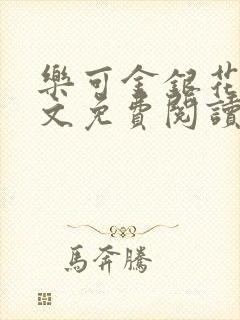 樂可金銀花
文免費閱讀
馬奔騰